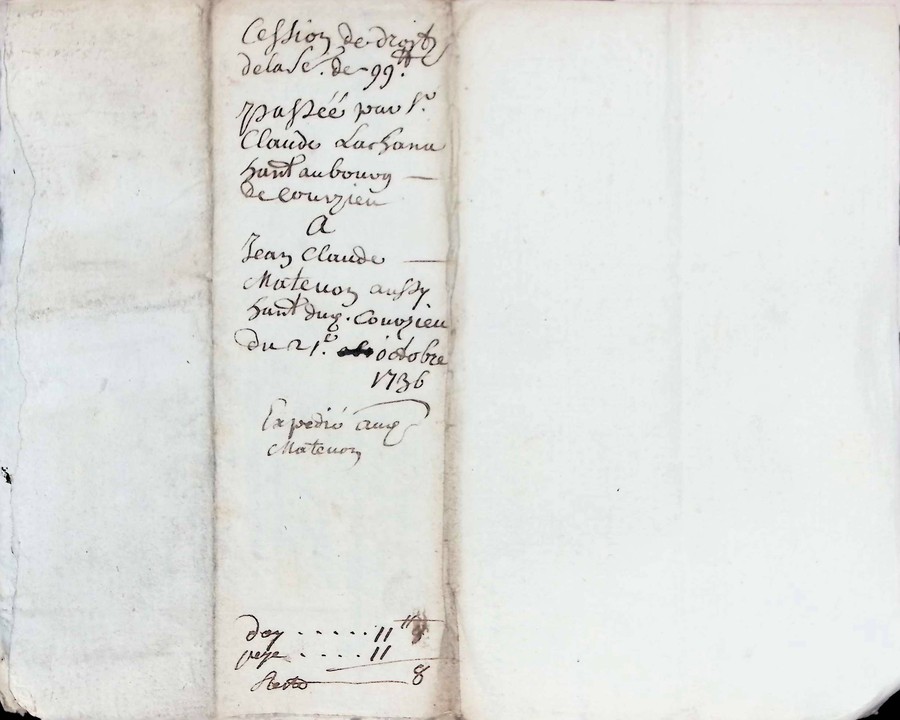 Cession de droits
de la Se. de 99tt.
passéé par sr.
Claude Lachana
hant au bourg —
de Courzieu
A
Jean Claude —
Matevon aussy
hant dud. Courzieu
du 21e. octobre
1736
Expedié aud
Matevon
doy . . . . . 11tt 8
paye . . . . 11
Reste 8